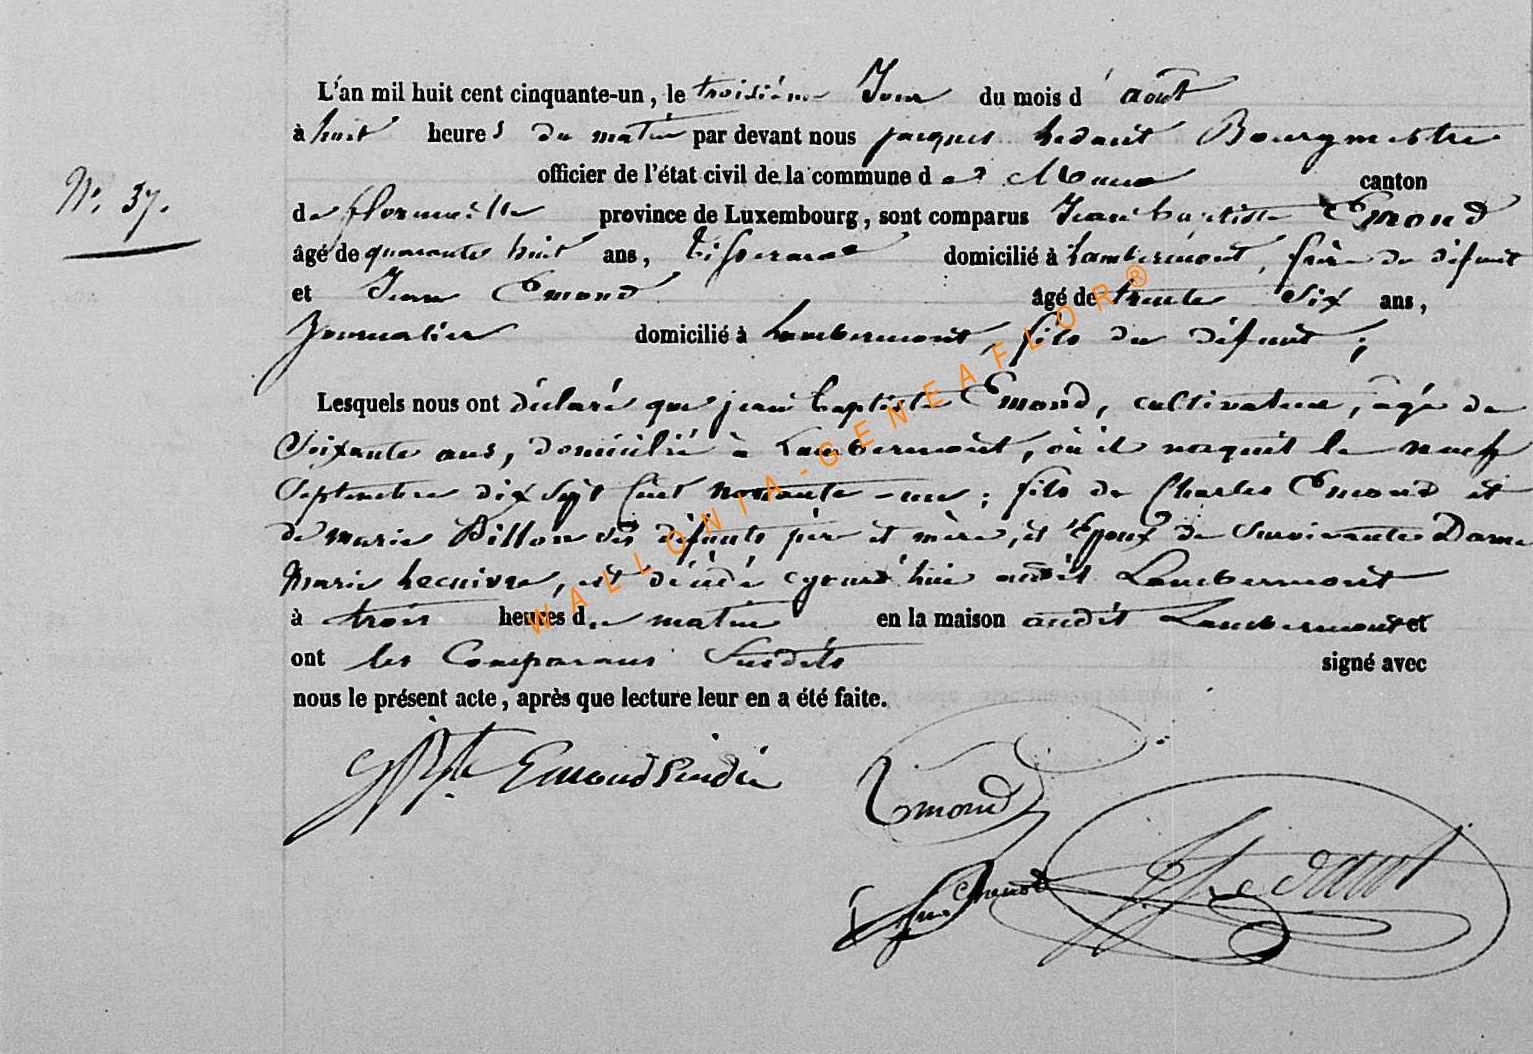 L'an mil huit cent cinquante-un, le troisième Jour du mois d'août
à huit heures du matin par devant nous jacques hedant Bourgmestre
officier de l'état civil de la commune de Muno canton
N°. 37.
de florenville province de Luxembourg, sont comparus Jean baptiste Emond
âgé de quarante huit ans, tisserand domicilié à Lambermont, frère du défunt
et Jean Emond âgé de trente Six ans,
Journalier domicilié à Lambermont, fils du défunt;
Lesquels nous ont déclaré que jean baptiste Emond, cultivateur, âgé de
Soixante ans, domicilié à Lambermont, où il naquit le neuf
Septembre dix Sept Cent nonante-un; fils de Charles Emond et
de marie Billon ses défunts père et mère, et Epoux de Survivante Dame
Marie Lecuivre, est décédé ajourd'hui audit Lambermont
à trois heures du matin en la maison audit Lambermont et
ont les Comparans Susdits signé avec
nous le présent acte, après que lecture leur en a été faite.
Emond
Emond
Jean Emond
hedant
WALLONIA-GENEAFLOR®